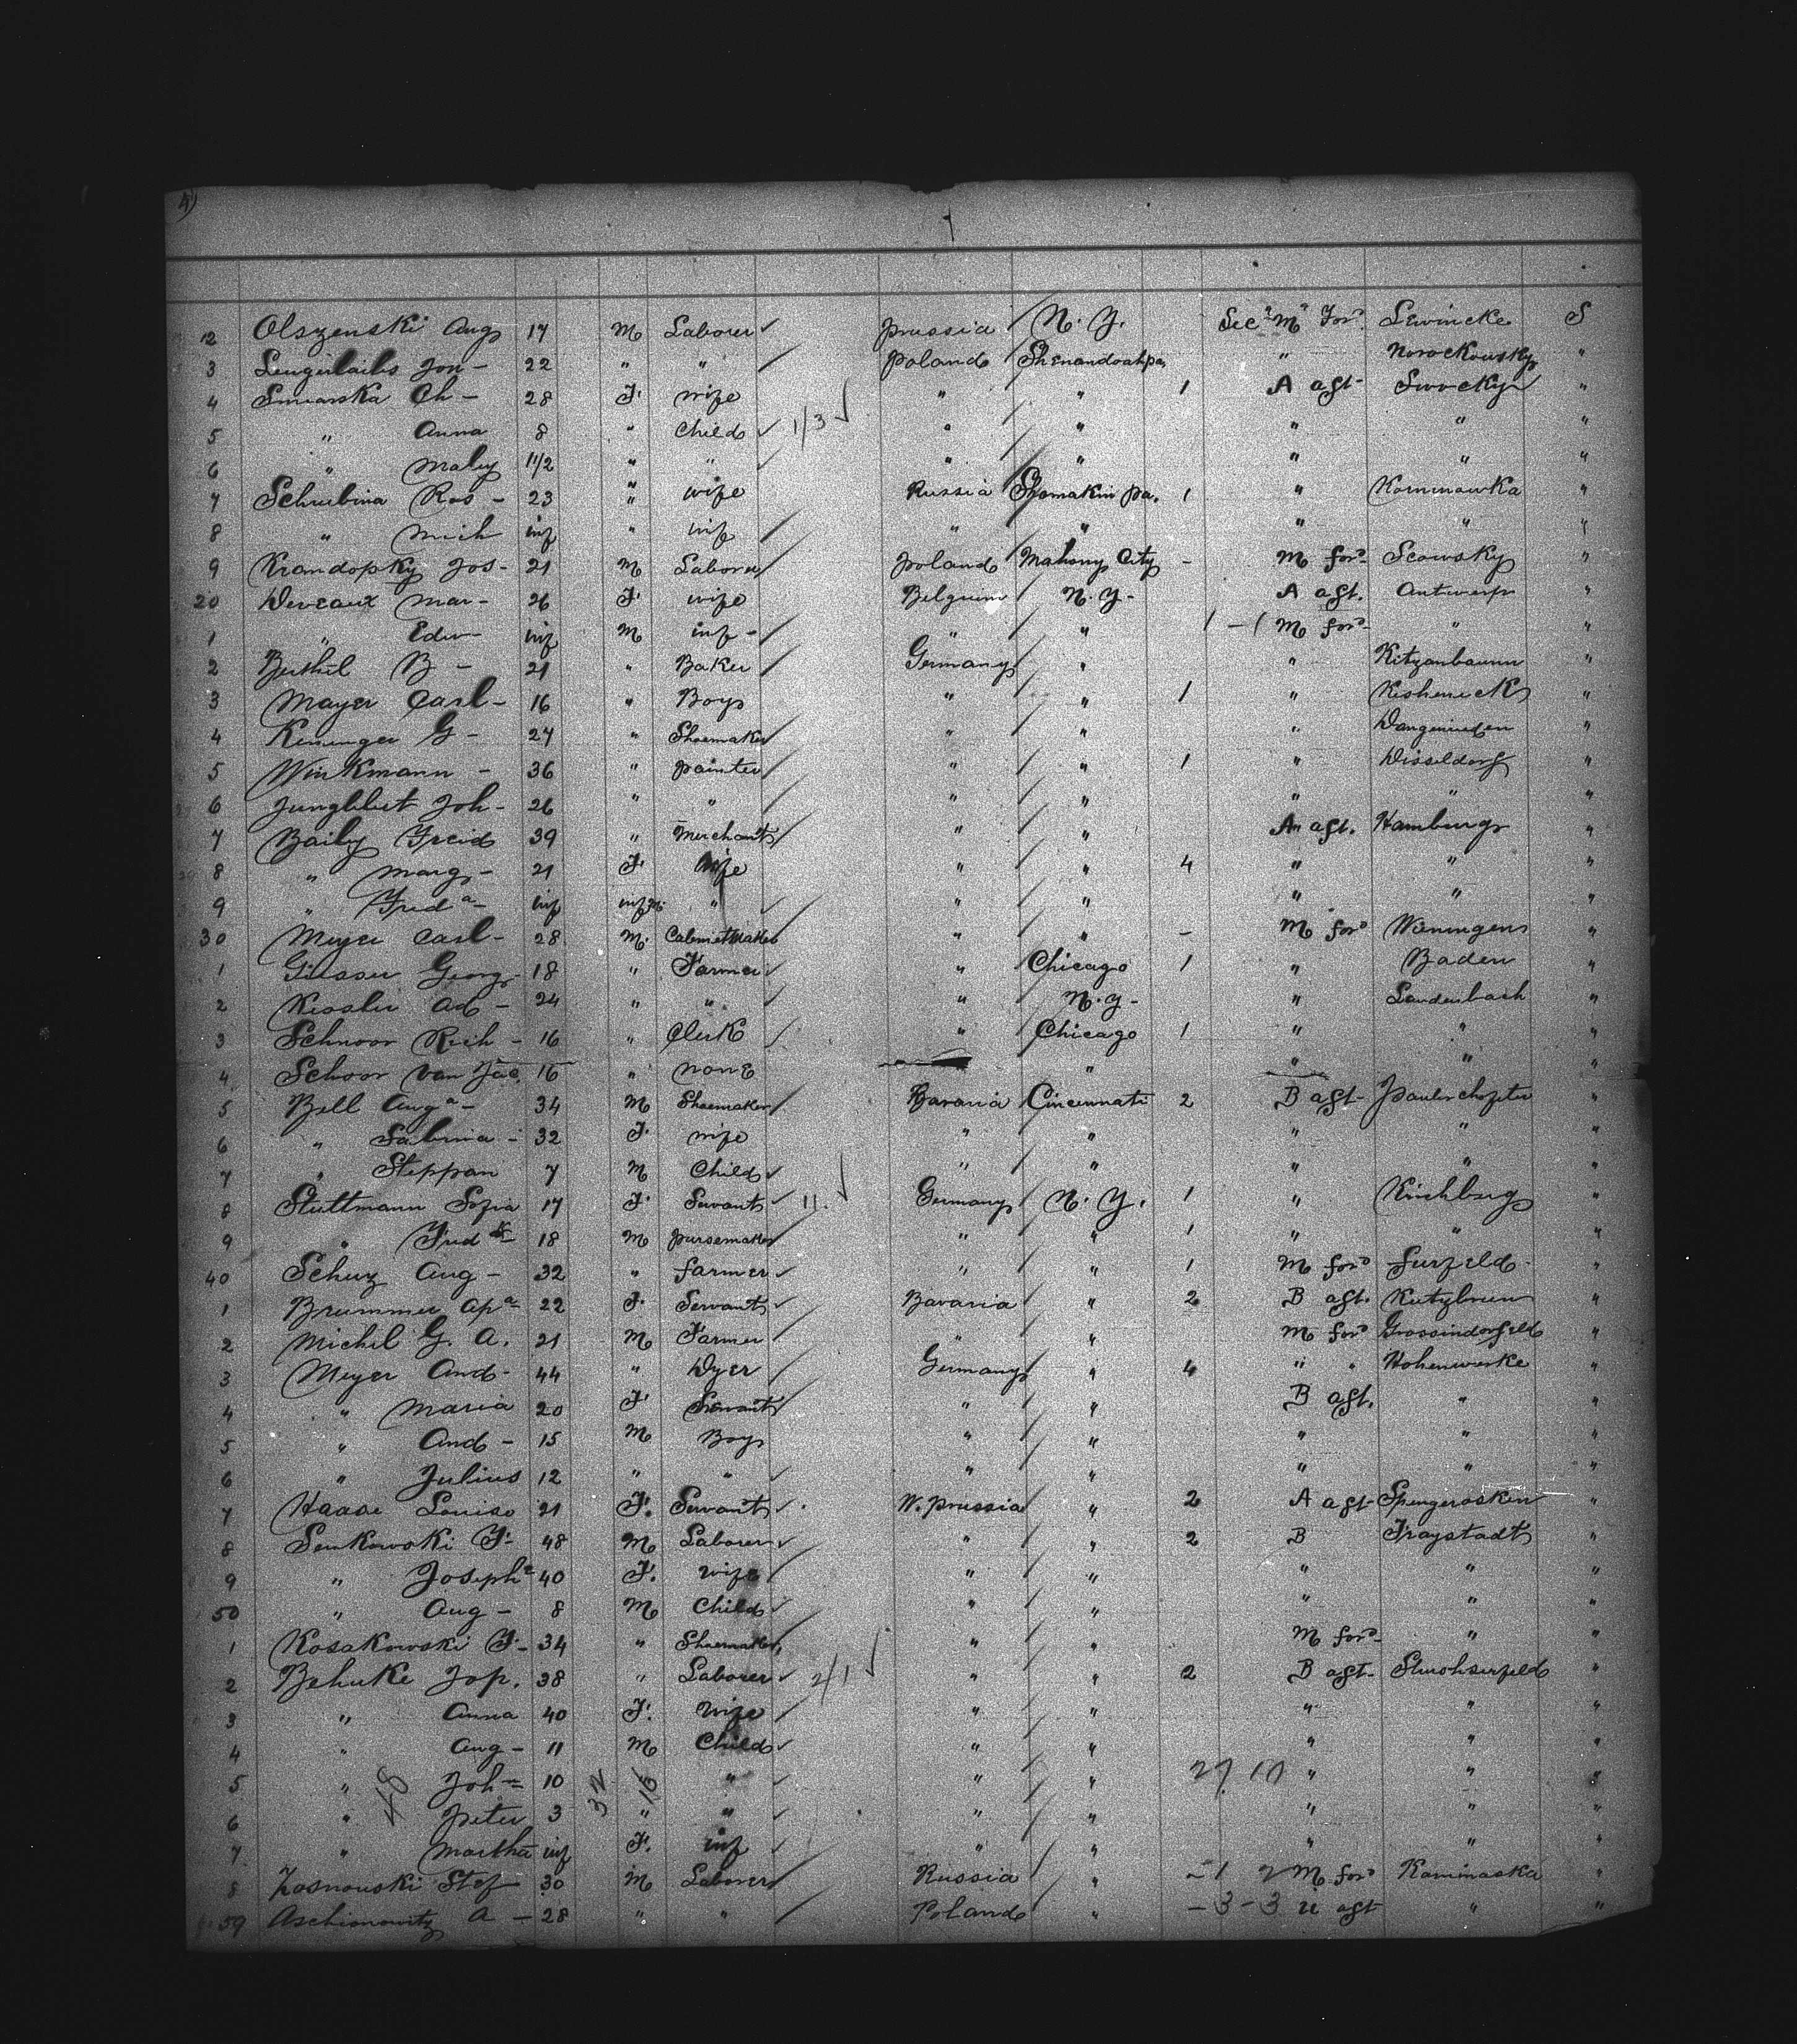 4)
12 Olszenski Aug 17 M Laborer Prussia N. Y. Sec. M For. Lewincke S
3 Jon - 22 " " Poland Shenandoah Pa " "
4 Ch - 28 F. wife " " 1 A aft "
5 " Anna 8 " Child 1/3 " " " " "
6 " Maley 11/2 " " " " " " "
7 Schubina Ros - 23 " wife Russia Shomakin Pa. 1 " Kominowka "
8 " Mich inf " inf " " " " "
9 Krandopky Jos - 21 M Laborer Poland Mahony City - M for. Scowsky "
20 Deveaux Mar - 26 F. wife Belgium N. Y - A aft. Antwerp "
1 " Edw inf M inf - " " 1 - 1 M for. " "
2 Bethel B - 21 " Baker Germany " " Kitzanbaum "
3 Mayer Carl - 16 " Boy " " 1 " "
4 G - 27 " Shoemaker " " " "
5 Winkmann - 36 " Painter " " 1 " Disseldorf "
6 Jungblut Joh - 26 " " " " " " "
7 Baily Freid 39 " Merchant " " An aft. Hamburg "
8 " Marg - 21 F. Wife " " 4 " " "
9 " Freda - inf inf M. " " " " " "
30 Meyer Carl - 28 M. Cabinetmaker " " - M for. "
1 Georg - 18 " Farmer " Chicago 1 " Baden "
2 Kessler Ad - 24 " " " N. Y - " Laudenbach "
3 Schnoor Rich - 16 " Clerk " Chicago 1 " " "
4 Schoor van Jac 16 " None " " " "
5 Bell Auga - 34 M Shoemaker Bavaria Cincinnati 2 B aft - "
6 " Sabina - 32 F. wife " " " " "
7 " Steppan 7 M Child " " " " "
8 Stuttmann Sofia 17 F. Servant 11. Germany N. Y. 1 " Kirchberg "
9 " Fred 18 M Pursemaker " " 1 " " "
40 Schuz Aug - 32 " Farmer " " 1 M for. Furfeld "
1 Brummer Apa - 22 F. Servant Bavaria " 2 B aft. Kutzbrun "
2 Michel G. A. 21 M Farmer " " M for. Grossindorfeld "
3 Meyer And - 44 " Dyer Germany " 4 " " Hohenwerke "
4 " Maria 20 F Servant " " B aft. " "
5 " And - 15 M Boy " " " " "
6 " Julius 12 " " " " " " "
7 Haase Louise 21 F. Servant W. Prussia " 2 A aft - "
8 Senkowski F - 48 M Laborer " " 2 B Fraystadt "
9 " Joseph 40 F. Wife " " " " "
50 " Aug - 8 M Child " " " " "
1 Kosakowski F - 34 " Shoemaker " " M for. " "
2 Behnke Jop. 38 " Laborer 2/1 " " 2 B aft - "
3 " Anna 40 F. Wife " " " " "
4 " Aug - 11 M Child " " " " "
5 " Joh - 10 " " " " 29 10 " " "
48 32 16
6 " Peter 3 " " " " " " "
7 " Martha inf F. inf " " " " "
8 Kosnouski Stef 30 M Laborer Russia " - 1 2 M for. Kaminaska "
59 Aschionowitz A - 28 " " Poland " - 3 - 3 aft " "